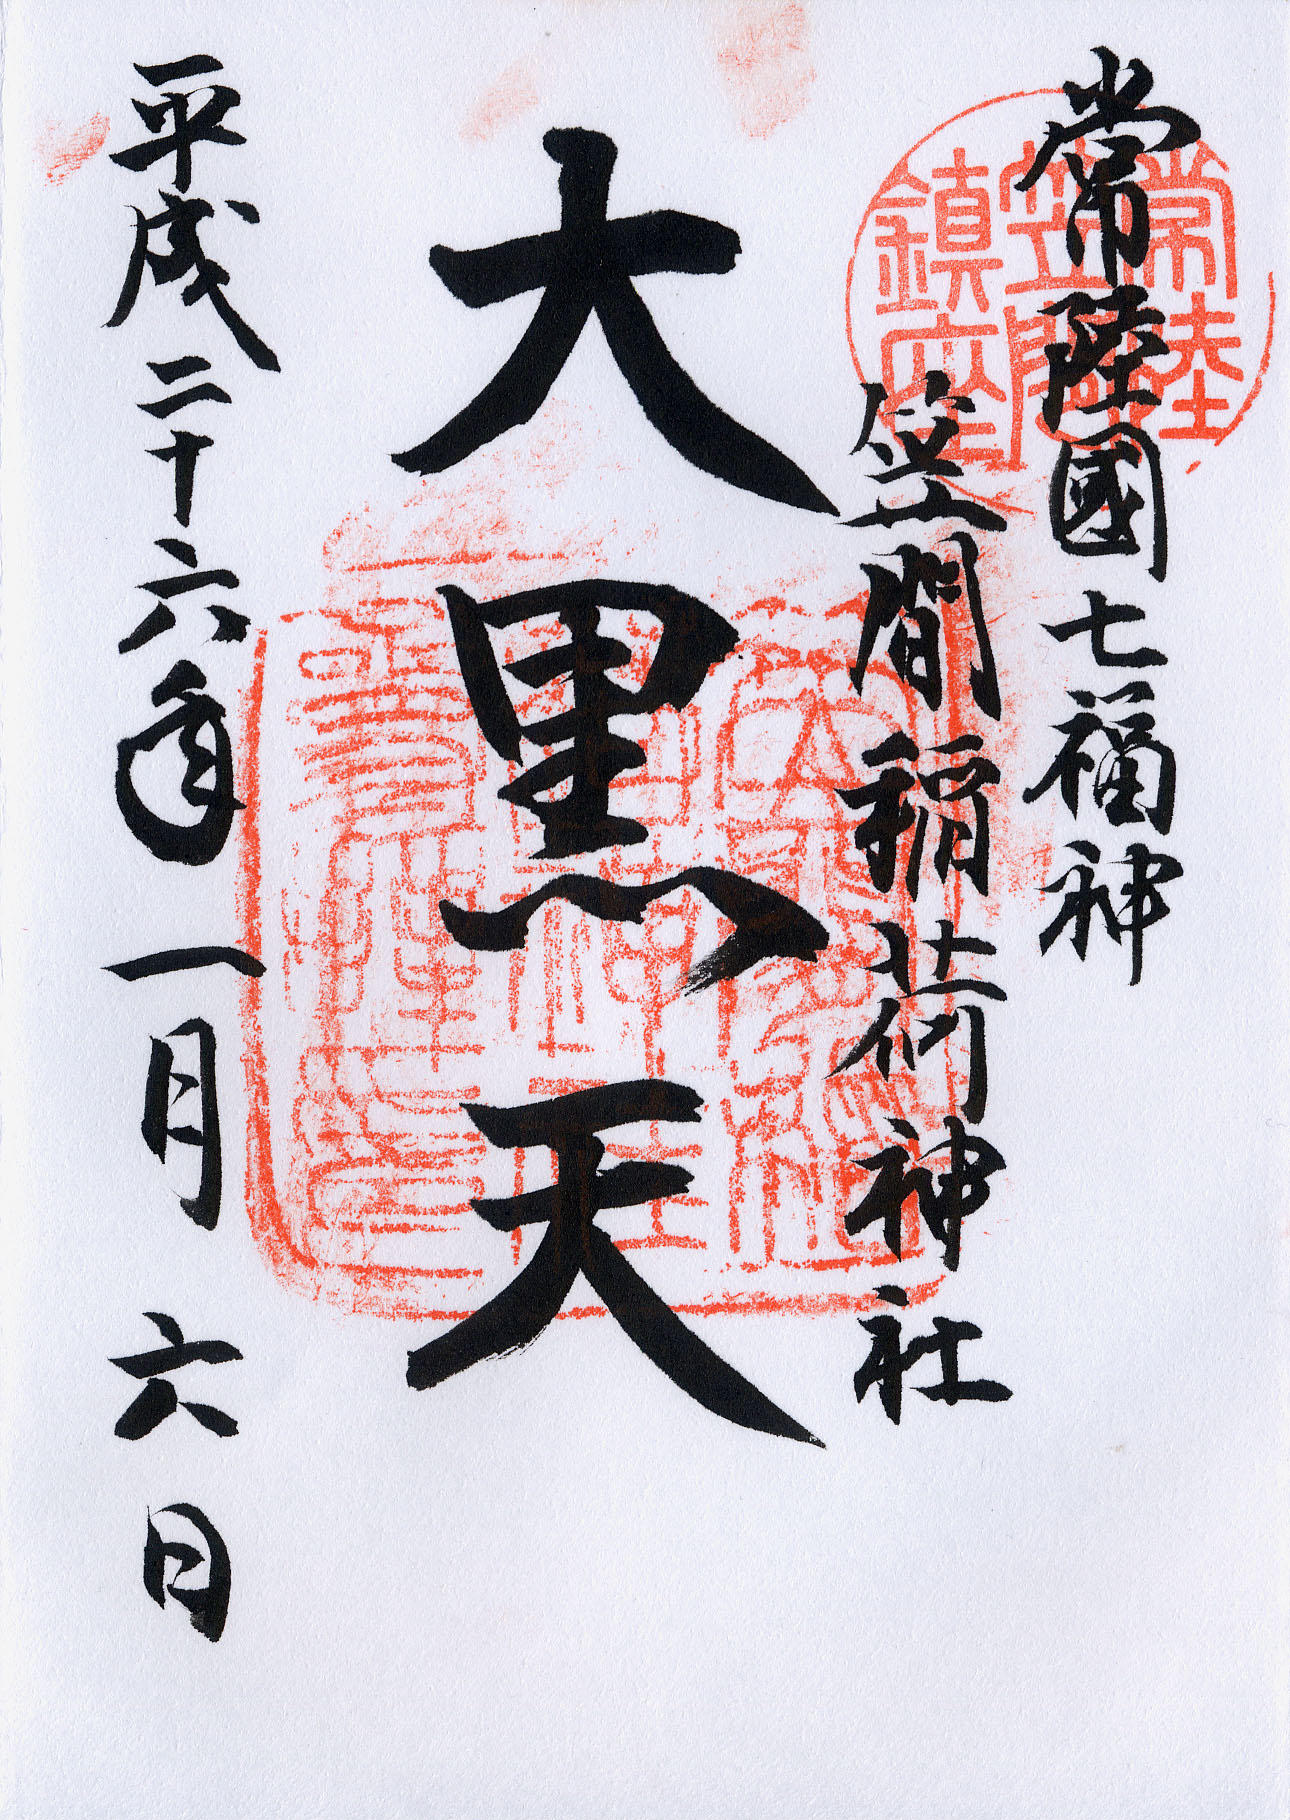 常陸國七福神
笠間稲荷神社
大黒天
平成二十六年一月六日
常陸
笠間
鎮座